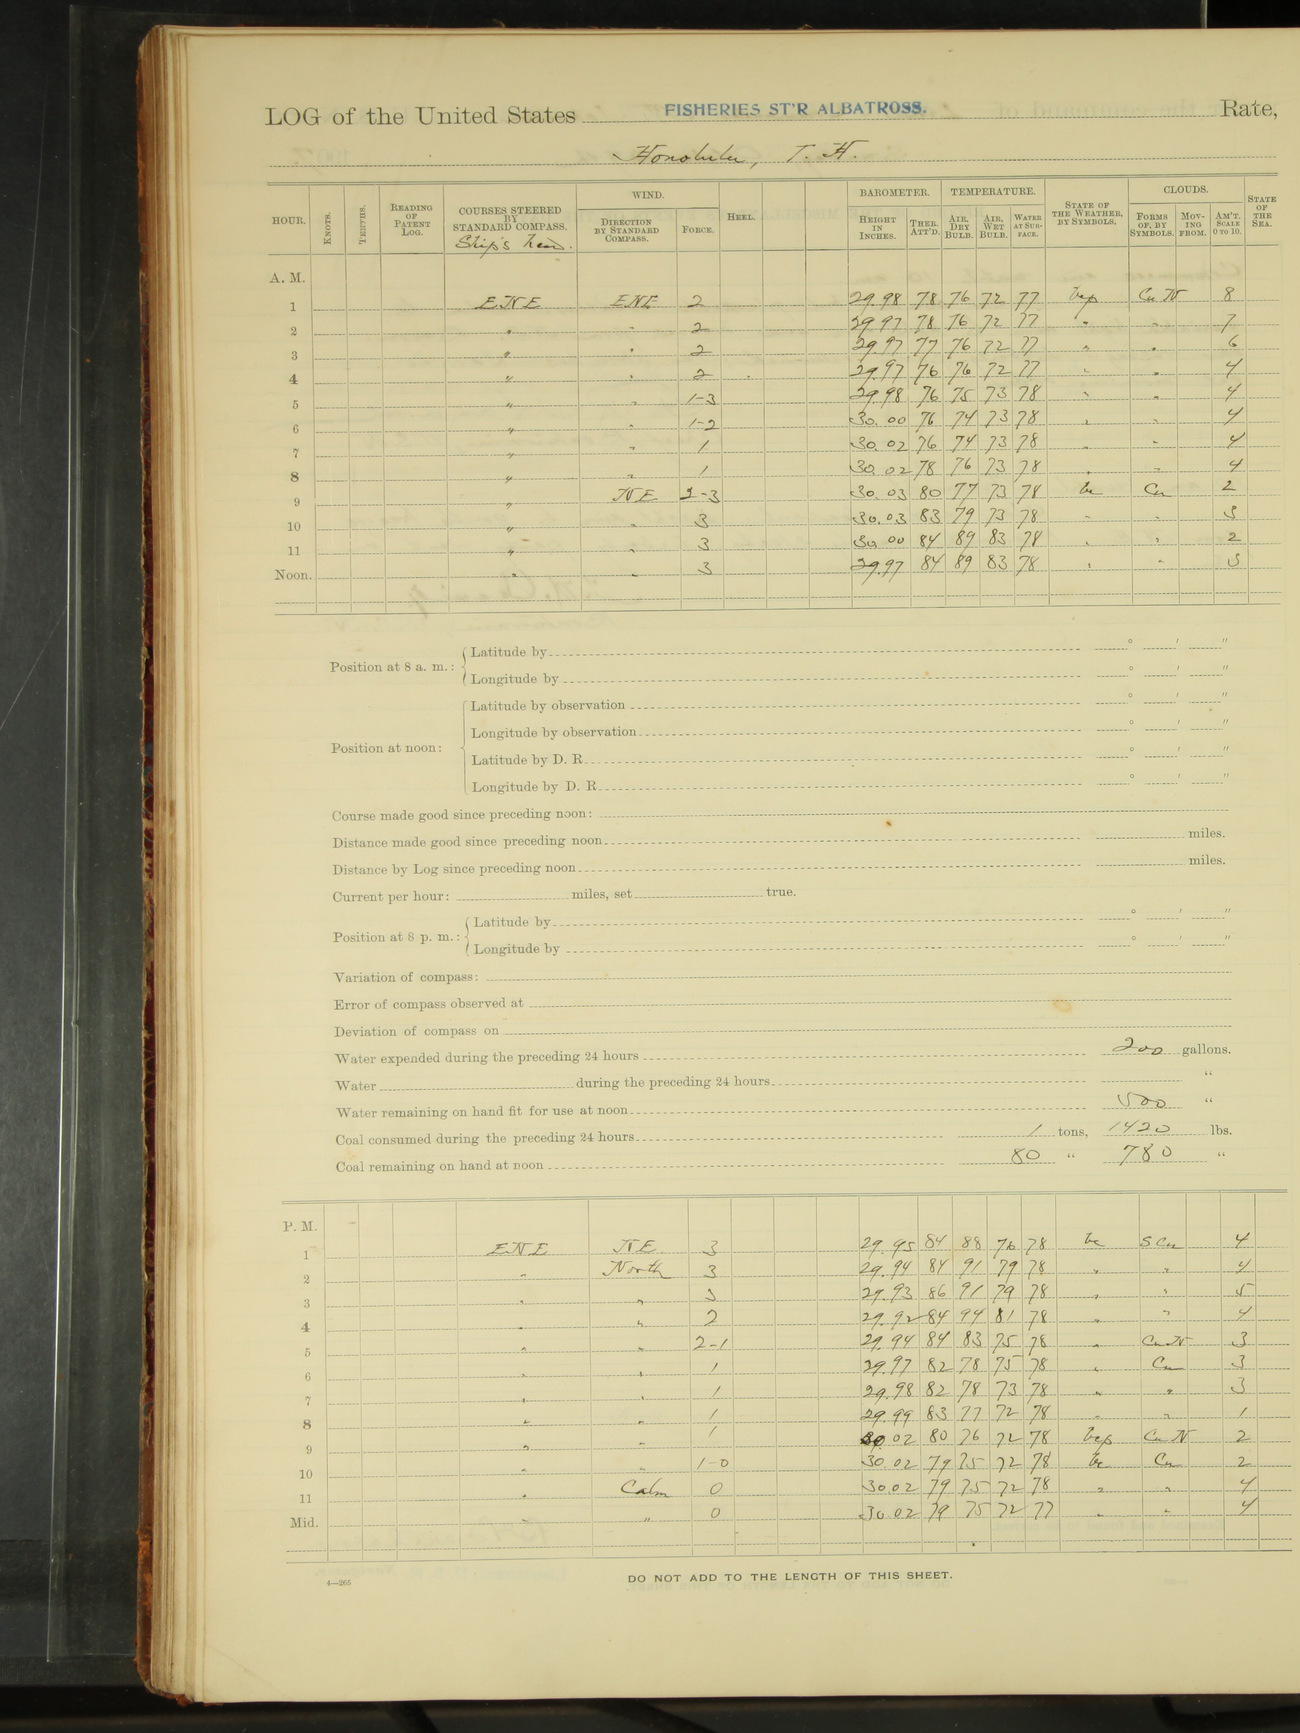 LOG of the United States FISHERIES ST'R ALBATROSS. Rate,
Honolulu, T. H.
HOUR. KNOTS. TENTHS. READING OF PATENT LOG. COURSES STEERED BY STANDARD COMPASS. Ship's head. WIND. DIRECTION BY STANDARD COMPASS. FORCE. HEEL. BAROMETER. HEIGHT IN INCHES. THER. ATT'D. TEMPERATURE. AIR, DRY BULB. AIR, WET BULB. WATER AT SURFACE. STATE OF THE WEATHER, BY SYMBOLS. CLOUDS. FORMS OF, BY SYMBOLS. MOVING FROM. AM'T. SCALE 0 TO 10. STATE OF THE SEA.
A. M.
1 ENE ENE 2 29.98 78 76 72 77 bcp Cu N 8
2 " " 2 29.97 78 76 72 77 " " 7
3 " " 2 29.97 77 76 72 77 " " 6
4 " " 2 29.97 76 76 72 77 " " 4
5 " " 1-3 29.98 76 75 73 78 " " 4
6 " " 1-2 30.00 76 74 73 78 " " 4
7 " " 1 30.02 76 74 73 78 " " 4
8 " " 1 30.02 78 76 73 78 " " 4
9 " NE 2-3 30.03 80 77 73 78 bc Cu 2
10 " " 3 30.03 83 79 73 78 " " 3
11 " " 3 30.00 84 89 83 78 " " 2
Noon. " " 3 29.97 84 89 83 78 " " 3
Position at 8 a. m.: Latitude by ° ′ ″
Longitude by ° ′ ″
Position at noon: Latitude by observation ° ′ ″
Longitude by observation ° ′ ″
Latitude by D. R. ° ′ ″
Longitude by D. R. ° ′ ″
Course made good since preceding noon:
Distance made good since preceding noon miles.
Distance by Log since preceding noon miles.
Current per hour: miles, set true.
Position at 8 p. m.: Latitude by ° ′ ″
Longitude by ° ′ ″
Variation of compass:
Error of compass observed at
Deviation of compass on
Water expended during the preceding 24 hours 200 gallons.
Water during the preceding 24 hours "
Water remaining on hand fit for use at noon 500 "
Coal consumed during the preceding 24 hours 1 tons, 1420 lbs.
Coal remaining on hand at noon 80 " 780 "
P. M.
1 ENE NE 3 29.95 84 88 76 78 bc S Cu 4
2 " North 3 29.94 84 91 79 78 " " 4
3 " " 3 29.93 86 91 79 78 " " 5
4 " " 2 29.92 84 94 81 78 " " 4
5 " " 2-1 29.94 84 83 75 78 " Cu N 3
6 " " 1 29.97 82 78 75 78 " Cu 3
7 " " 1 29.98 82 78 73 78 " " 3
8 " " 1 29.99 83 77 72 78 " " 1
9 " " 1 30.02 80 76 72 78 bcp Cu N 2
10 " " 1-0 30.02 79 75 72 78 bc Cu 2
11 " Calm 0 30.02 79 75 72 78 " " 4
Mid. " " 0 30.02 79 75 72 77 " " 4
4—265
DO NOT ADD TO THE LENGTH OF THIS SHEET.